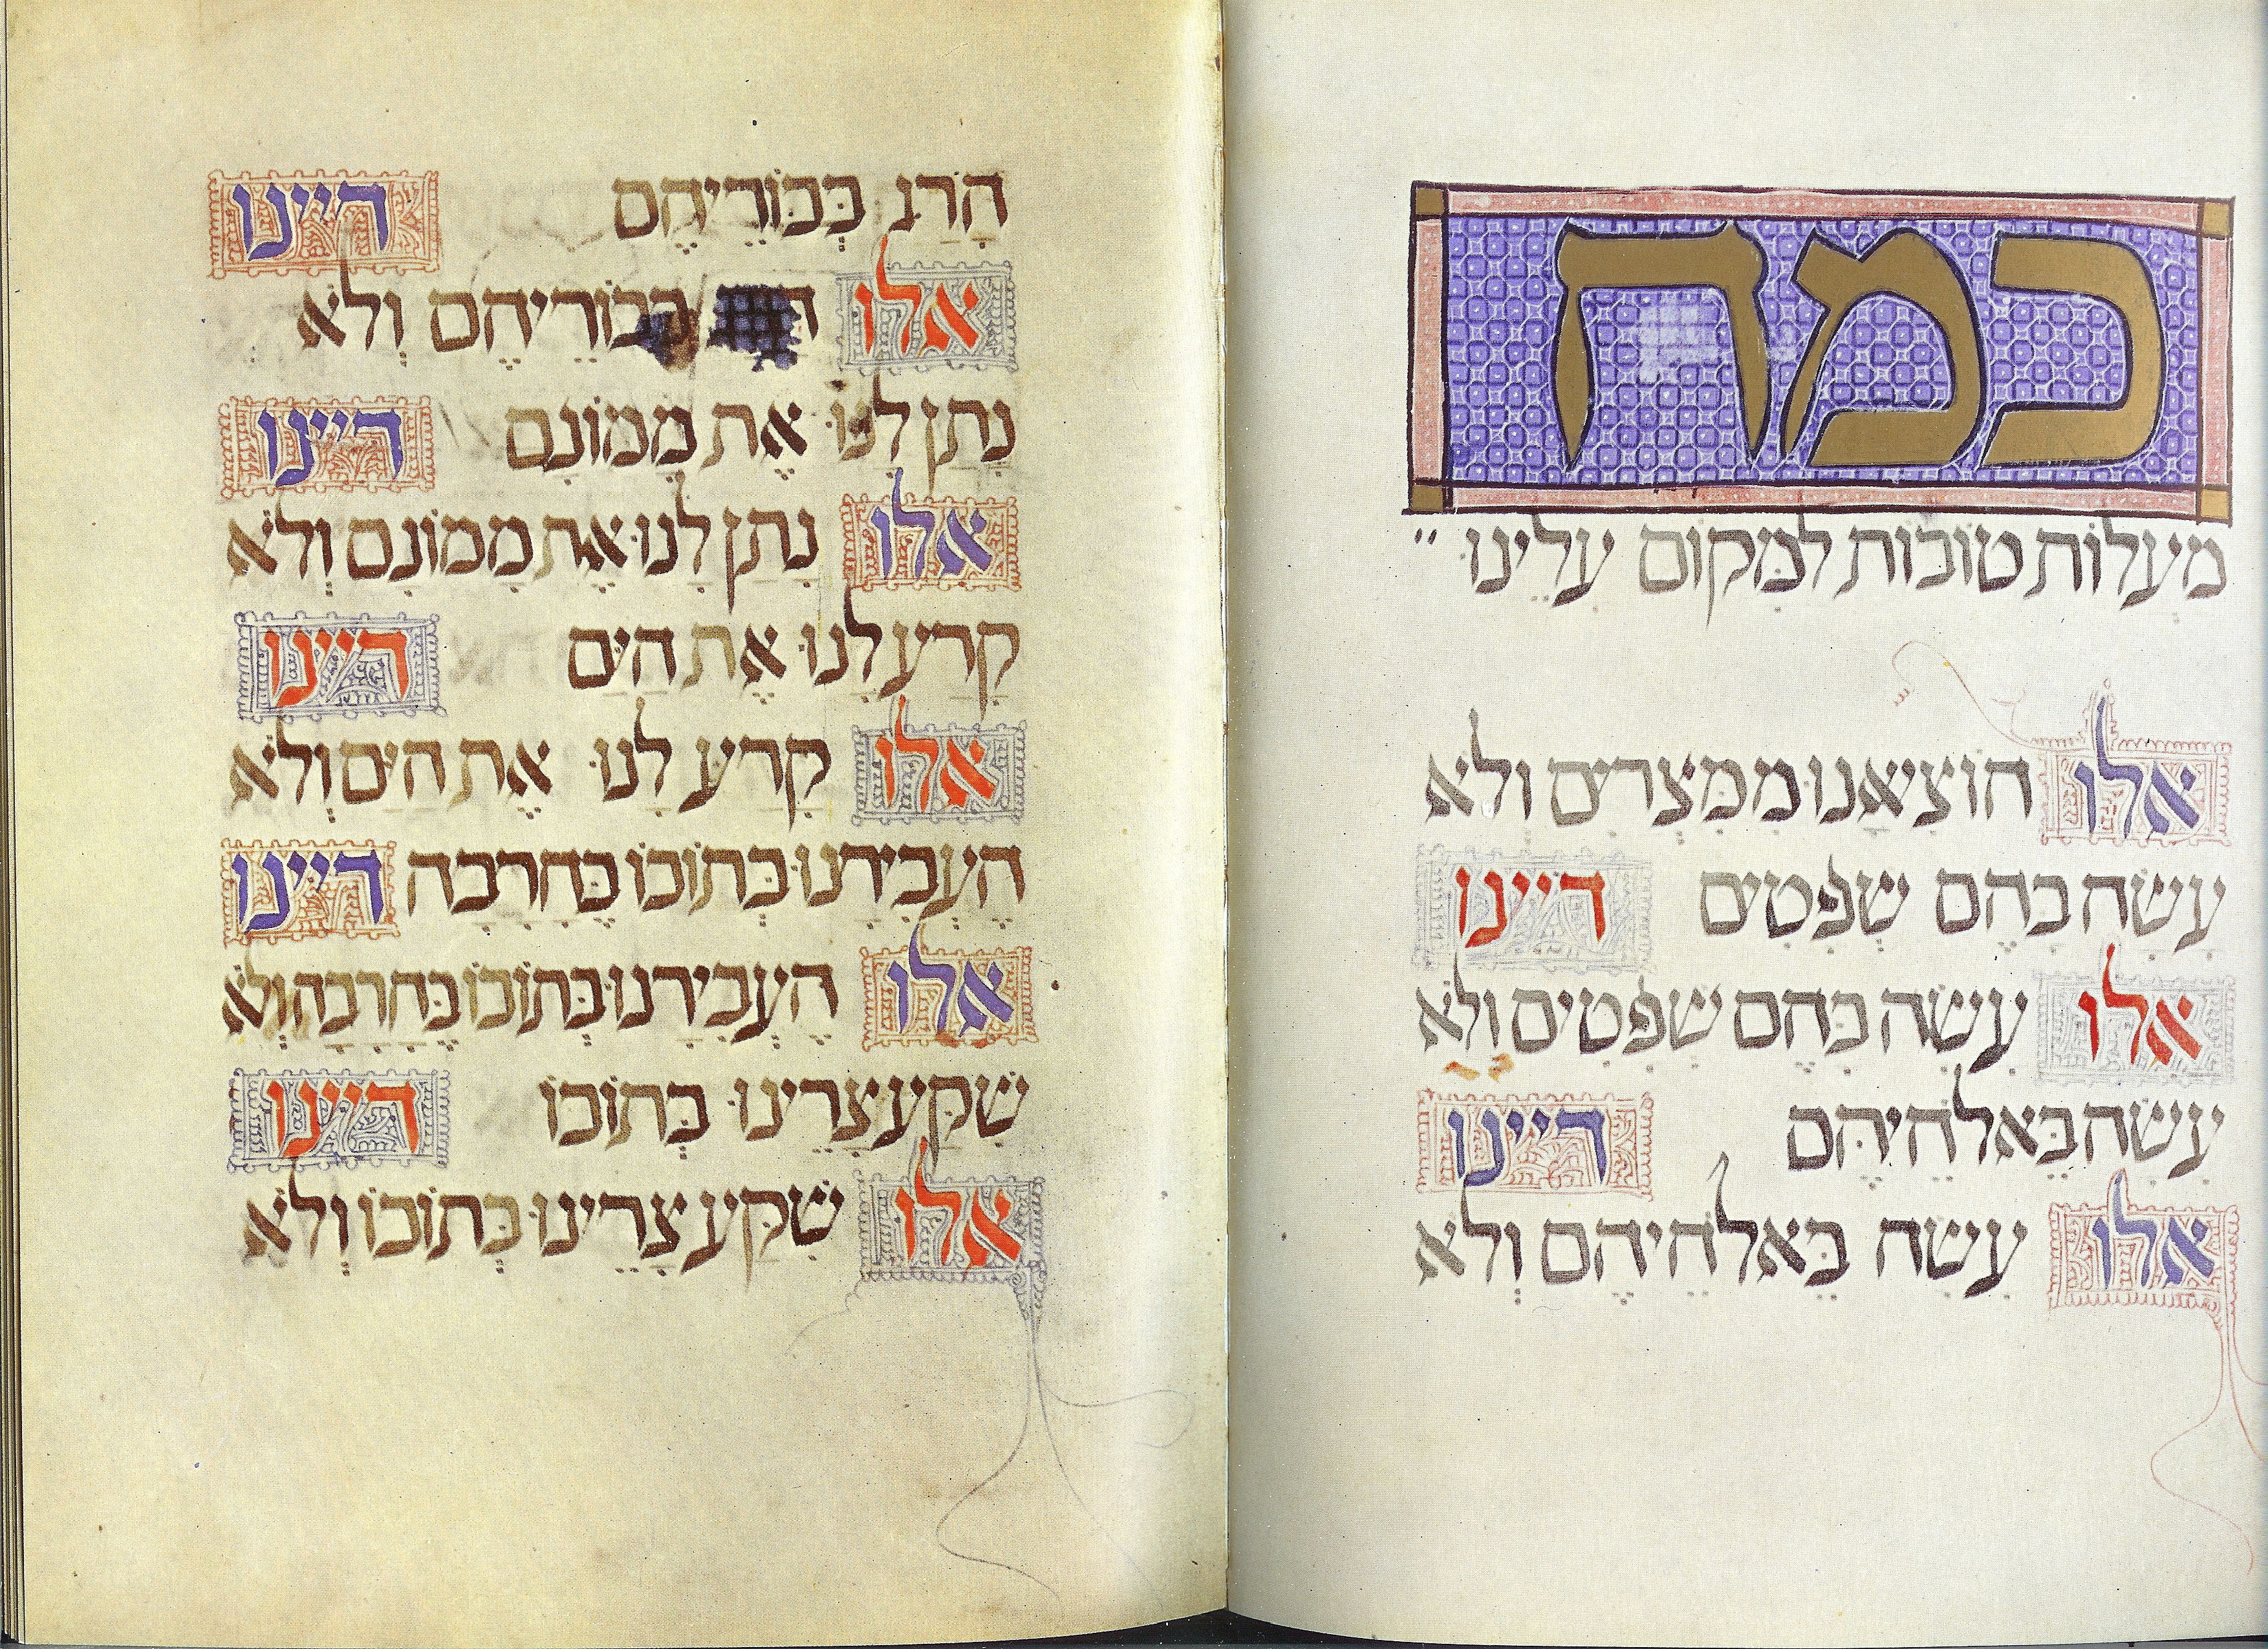 כמה
מעלות טובות למקום עלינו
אלו הוציאנו ממצרים ולא
עשה בהם שפטים דיינו
אלו עשה בהם שפטים ולא
עשה באלהיהם דיינו
אלו עשה באלהיהם ולא
הרג בכוריהם דיינו
אלו בכוריהם ולא
נתן לנו את ממונם דיינו
אלו נתן לנו את ממונם ולא
קרע לנו את הים דיינו
אלו קרע לנו את הים ולא
העבירנו בתוכו בחרבה דיינו
אלו העבירנו בתוכו בחרבה ולא
שקע צרינו בתוכו דיינו
אלו שקע צרינו בתוכו ולא